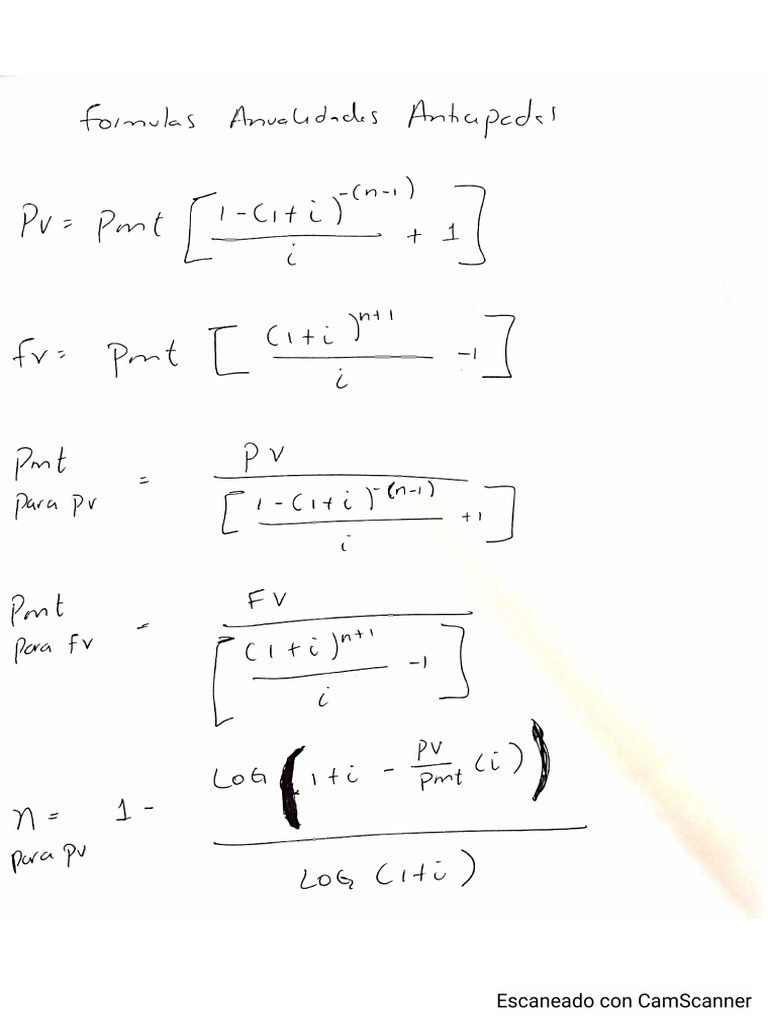 Formulas Anualidades Anticipadas
Pv = Pmt [ (1-(1+i)^-(n-1)) / i + 1 ]
fv = Pmt [ (1+i)^n+1 / i -1 ]
Pmt para pv = PV / [ (1-(1+i)^-(n-1)) / i +1 ]
Pmt para fv = FV / [ (1+i)^n+1 / i -1 ]
n = para pv 1 - LOG (1+i - PV/Pmt (i)) / LOG (1+i)
Escaneado con CamScanner